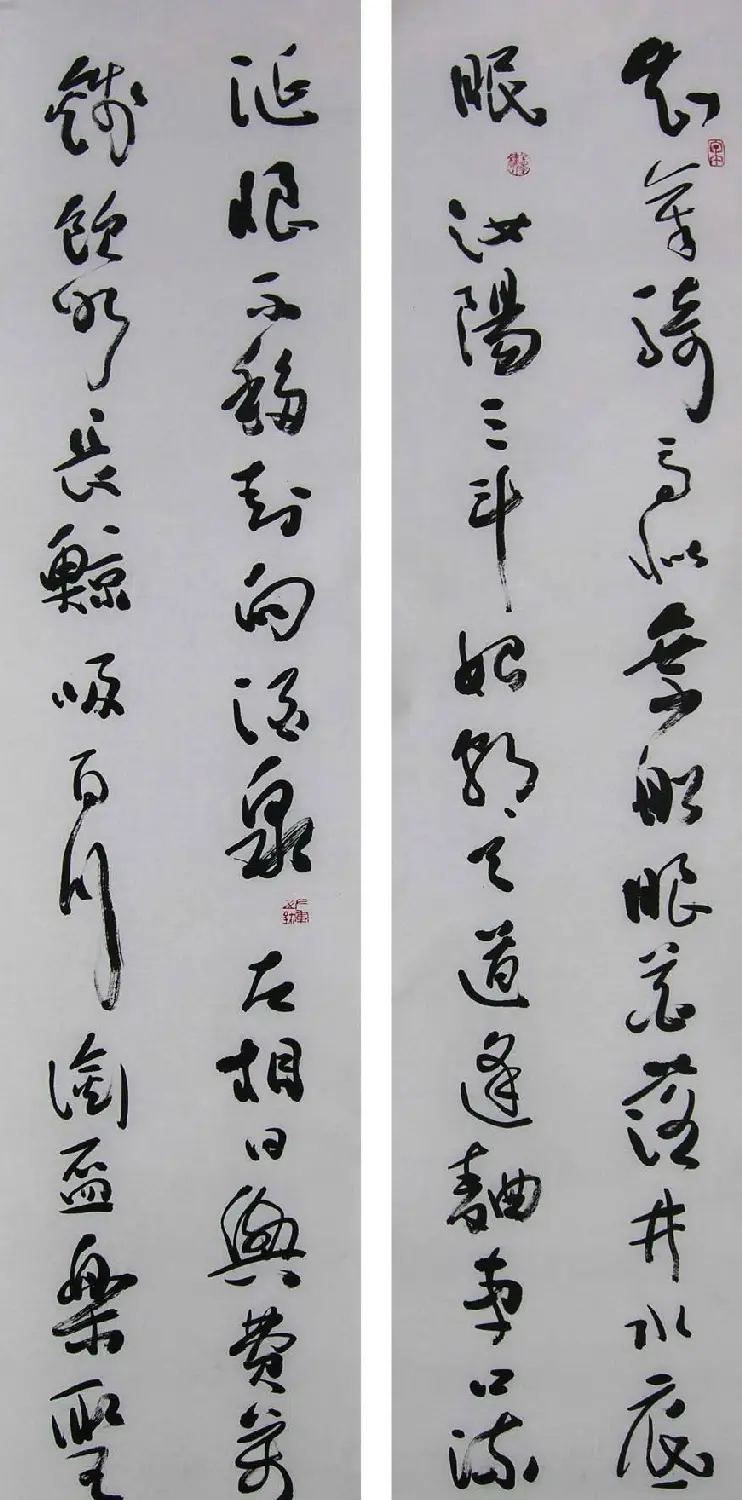 知章騎馬似乘船眼花落井水底
眠汝陽三斗始朝天道逢麴車口流
涎恨不移封向酒泉左相日興費萬
錢飲如長鯨吸百川銜盃樂聖